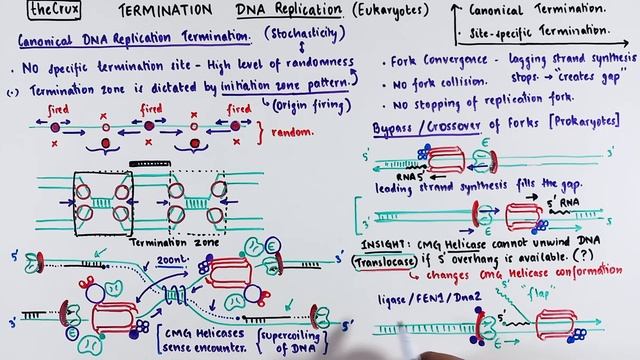 theCrux
TERMINATION DNA Replication (Eukaryotes)
Canonical Termination.
Site-specific Termination.
Canonical DNA Replication Termination. (Stochasticity)
· No specific termination site - High level of randomness
(·) Termination zone is dictated by initiation zone pattern.
(Origin firing)
fired fired fired
x x
random.
x x x
Termination zone
200nt.
E
5'
3'
3'
5'
[CMG Helicases sense encounter.]
{supercoiling of DNA}
· Fork Convergence - lagging strand synthesis
stops. → "creates gap"
· No fork collision.
· No stopping of replication fork.
Bypass/Crossover of Forks [Prokaryotes]
E
5' 3'
RNA5'
leading strand synthesis fills the gap.
5' RNA
3' 5'
INSIGHT: CMG Helicase cannot unwind DNA
(Translocase) if 5' overhang is available. (?)
↳ changes CMG Helicase conformation
ligase/FEN1/Dna2
"flap"
5'
3'
E
E →